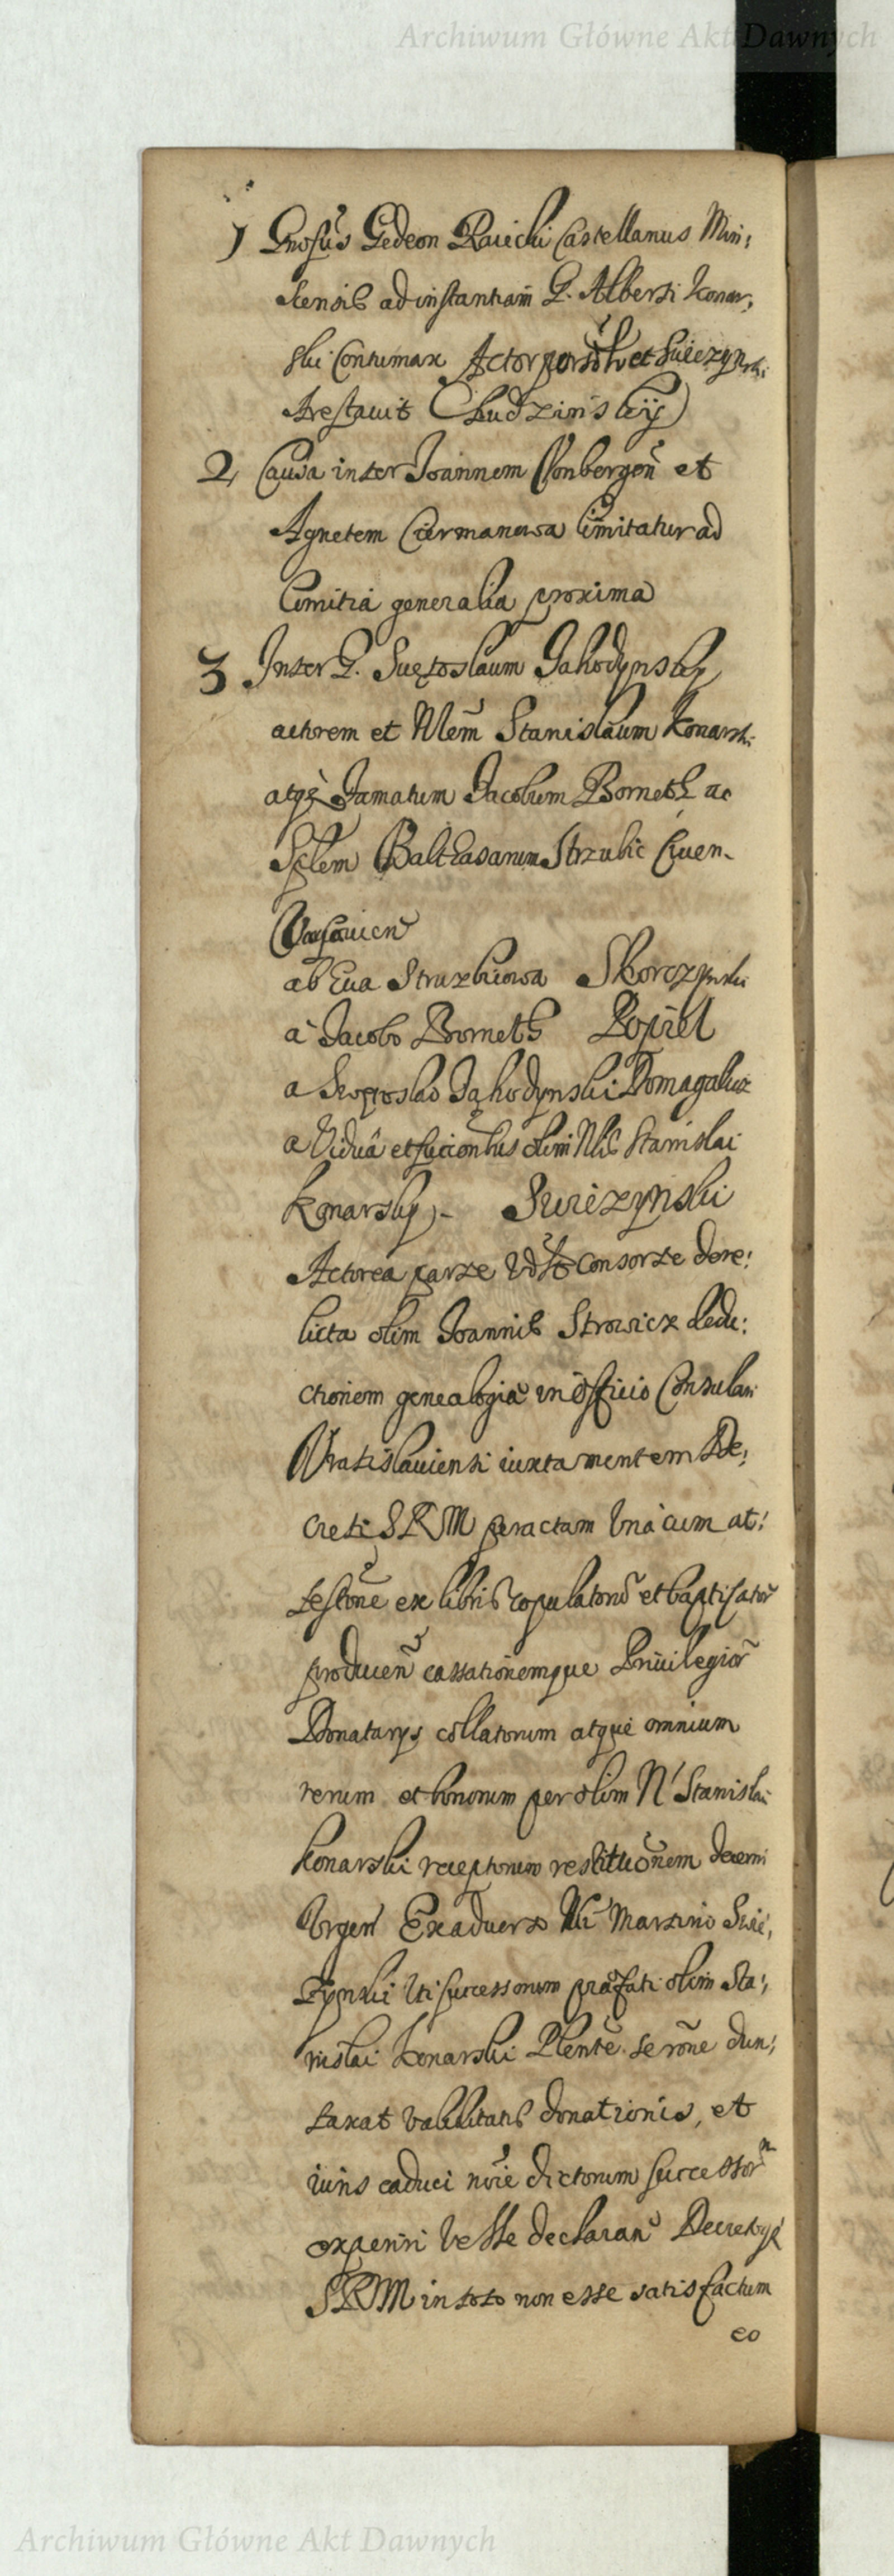 Archiwum Główne Akt Dawnych
1 Gnosus Gedeon Raiecki Castellanus Min:
scensis ad instantiam G. Alberti Konar:
ski Contumax Actor et Swiezynski
Arestavit Chudzinskÿ
2 Causa inter Joannem et
Agnetem Germanowa limitatur ad
Comitia generalia proxima
3 Inter G. Suętoslaum Jahodynsky
actorem et Nlem Stanislaum Konarski
atqȝ Famatum Jacobum Borneth ac
Splem Balthasarum Strzubic Ciuen.
Varsavien
ab Eva Struzbicowa Skorczynski
a Jacobo Borneth Popiel
a Jahodynski Domagalicz
a Vidua et olim Nlis Stanislai
Konarsky - Swiezynski
Actorea parte consorte dere:
licta olim Joannis Strowicz dedu:
ctionem genealogiae in Officio Consulari
Vratislaviensi iuxta mentem De:
creti SRM peractam Unacum at:
testone ex libris copulatorum et baptisator
producen cassationemque Privilegior
Donatarys collatorum atque omnium
rerum et bonorum per olim N Stanislai
Konarski receptorum restitutionem decerni
Urgen Exaduerso Nli Martino Swie:
zynski uti successorum praefati olim Sta:
nislai Konarski Plente se rone dun:
taxat validitatis donationis, et
iuris caduci noie dictorum successorm
experiri velle declaran Decretoqȝ
SRM in toto non esse satisfactum
eo
Archiwum Główne Akt Dawnych